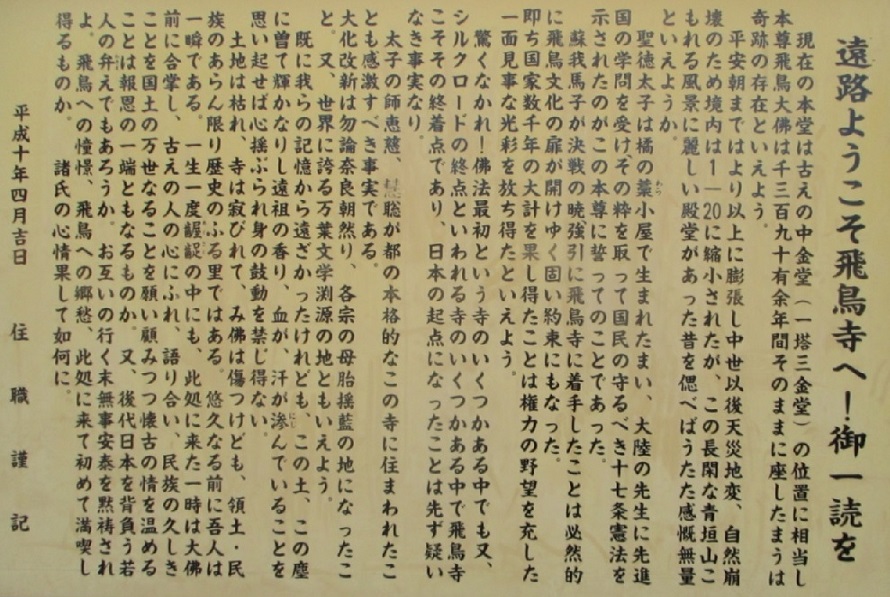 遠路ようこそ飛鳥寺へ！御一読を
現在の本堂は古えの中金堂（一塔三金堂）の位置に相当し
本尊飛鳥大佛は千三百九十有余年間そのままに座したまうは
奇跡の存在といえよう。
平安朝まではより以上に膨張し中世以後天災地変、自然崩
壊のため境内は1―20に縮小されたが、この長閑な青垣山こ
もれる風景に麗しい殿堂があった昔を偲べばうたた感慨無量
といえようか。
聖徳太子は橘の葉小屋で生まれたまい、大陸の先生に先進
国の学問を受けその粋を取って国民の守るべき十七条憲法を
示されたのがこの本尊に誓ってのことであった。
蘇我馬子が決戦の暁強引に飛鳥寺に着手したことは必然的
に飛鳥文化の扉が開けゆく固い約束にもなった。
即ち国家数千年の大計を果し得たことは権力の野望を充した
一面見事な光彩を放ち得たといえよう。
驚くなかれ！佛法最初という寺のいくつかある中でも又、
シルクロードの終点といわれる寺のいくつかある中で飛鳥寺
こそその終着点であり、日本の起点になったことは先ず疑い
なき事実なり。
太子の師恵慈、聡が都の本格的なこの寺に住まわれたこ
とも感激すべき事実である。
大化改新は勿論奈良朝然り、各宗の母胎揺藍の地になったこ
と。又、世界に誇る万葉文学渕源の地ともいえよう。
既に我らの記憶から遠ざかったけれども、この土、この塵
に曽て輝かなりし遠祖の香り、血が、汗が滲んでいることを
思い起せば心揺ぶられ身の鼓動を禁じ得ない。
土地は枯れ、寺は寂びれて、み佛は傷つけども、領土・民
族のあらん限り歴史のふる里ではある。悠久なる前に吾人は
一瞬である。一生一度齷齪の中にも、此処に来た一時は大佛
前に合掌し、古えの人の心にふれ、語り合い、民族の久しき
ことを国土の万世なることを願い顧みつつ懐古の情を温める
ことは報恩の一端ともなるものか。又、後代日本を背負う若
人の弁えでもあろうか。お互いの行く末無事安泰を黙祷され
よ。飛鳥への憧憬、飛鳥への郷愁、此処に来て初めて満喫し
得るものか。　諸氏の心情果して如何に。
平成十年四月吉日　住職謹記